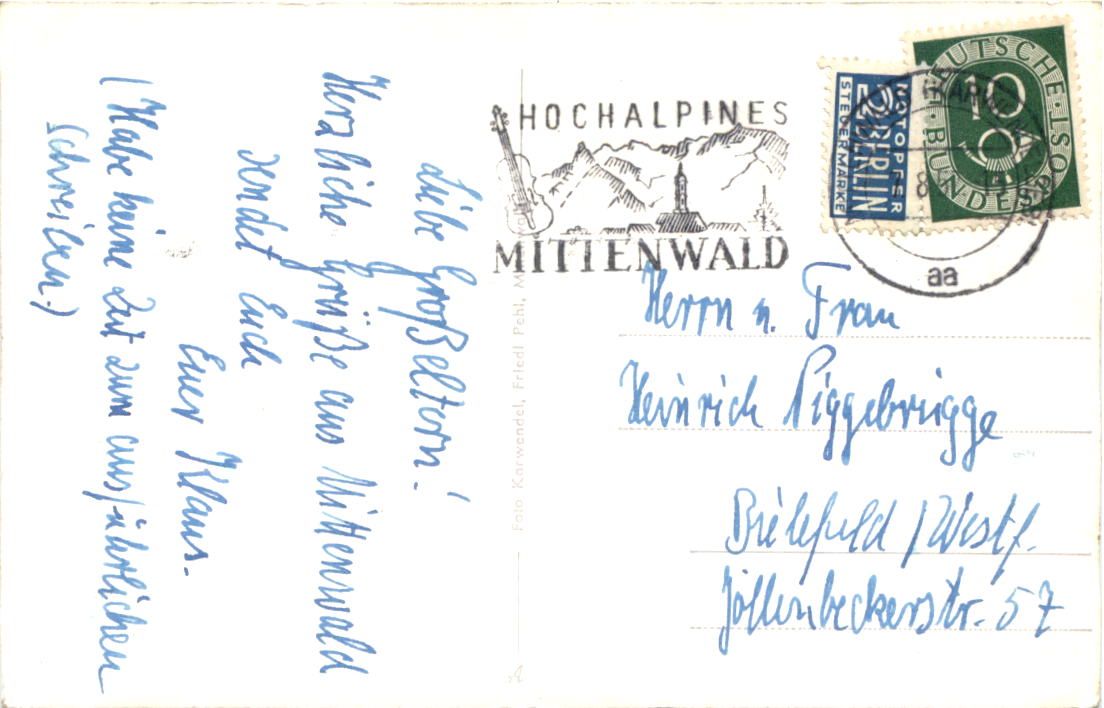 Liebe Großeltern!
Herzliche Grüße aus Mittenwald
sendet Euch
Euer Klaus.
(Habe keine Zeit zum ausführlichen
Schreiben.)
Foto Karwendel, Friedl Pehl, M
HOCHALPINES
MITTENWALD
NOTOPFER
2 BERLIN
STEUERMARKE
DEUTSCHE
BUNDESPOST
10
aa
Herrn u. Frau
Heinrich Piggebrügge
Bielefeld /Westf.
Jöllenbeckerstr. 57